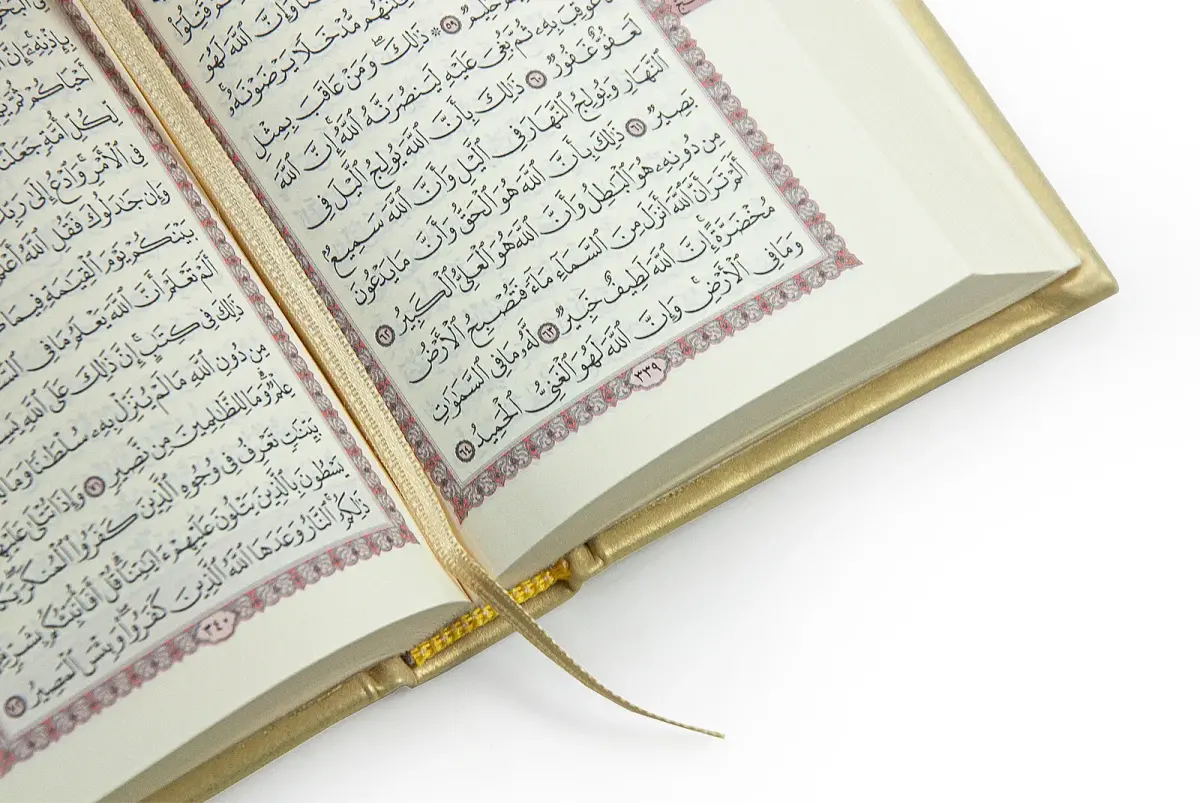 قُتِلُوٓا۟
وَإِنَّ ٱللَّهَ لَهُوَ
مُّدْخَلًا يَرْضَوْنَهُۥ
حَلِيمٌ ٥٩ ۞ ذَٰلِكَ وَمَنْ عَاقَبَ بِمِثْلِ
عُوقِبَ بِهِۦ ثُمَّ بُغِىَ عَلَيْهِ لَيَنصُرَنَّهُ ٱللَّهُ إِنَّ ٱللَّهَ
لَعَفُوٌّ غَفُورٌ ٦٠ ذَٰلِكَ بِأَنَّ ٱللَّهَ يُولِجُ ٱلَّيْلَ فِى
ٱلنَّهَارِ وَيُولِجُ ٱلنَّهَارَ فِى ٱلَّيْلِ وَأَنَّ ٱللَّهَ سَمِيعٌۢ
بَصِيرٌ ٦١ ذَٰلِكَ بِأَنَّ ٱللَّهَ هُوَ ٱلْحَقُّ وَأَنَّ مَا يَدْعُونَ
مِن دُونِهِۦ هُوَ ٱلْبَٰطِلُ وَأَنَّ ٱللَّهَ هُوَ ٱلْعَلِىُّ ٱلْكَبِيرُ ٦٢
أَلَمْ تَرَ أَنَّ ٱللَّهَ أَنزَلَ مِنَ ٱلسَّمَآءِ مَآءً فَتُصْبِحُ ٱلْأَرْضُ
مُخْضَرَّةً إِنَّ ٱللَّهَ لَطِيفٌ خَبِيرٌ ٦٣ لَّهُۥ مَا فِى ٱلسَّمَٰوَٰتِ
وَمَا فِى ٱلْأَرْضِ وَإِنَّ ٱللَّهَ لَهُوَ ٱلْغَنِىُّ ٱلْحَمِيدُ ٦٤
٣٣٩
بِإِذْنِهِۦٓ إِنَّ
أَحْيَاكُمْ ثُمَّ
لِّكُلِّ أُمَّةٍ جَعَلْنَا
فِى ٱلْأَمْرِ وَٱدْعُ إِلَىٰ رَبِّكَ
وَإِن جَٰدَلُوكَ فَقُلِ ٱللَّهُ
بَيْنَكُمْ يَوْمَ ٱلْقِيَٰمَةِ فِيمَا
أَلَمْ تَعْلَمْ أَنَّ ٱللَّهَ يَعْلَمُ مَا فِى
ذَٰلِكَ فِى كِتَٰبٍ إِنَّ ذَٰلِكَ عَلَى ٱللَّهِ
مِن دُونِ ٱللَّهِ مَا لَمْ يُنَزِّلْ بِهِۦ سُلْطَٰنًا وَمَا
عِلْمٌ وَمَا لِلظَّٰلِمِينَ مِن نَّصِيرٍ ٧١ وَإِذَا تُتْلَىٰ
بَيِّنَٰتٍ تَعْرِفُ فِى وُجُوهِ ٱلَّذِينَ كَفَرُوا۟ ٱلْمُنكَرَ
يَسْطُونَ بِٱلَّذِينَ يَتْلُونَ عَلَيْهِمْ ءَايَٰتِنَا قُلْ أَفَأُنَبِّئُكُم بِشَرٍّ
ذَٰلِكُمُ ٱلنَّارُ وَعَدَهَا ٱللَّهُ ٱلَّذِينَ كَفَرُوا۟ وَبِئْسَ ٱلْمَصِيرُ ٧٢
٣٤٠